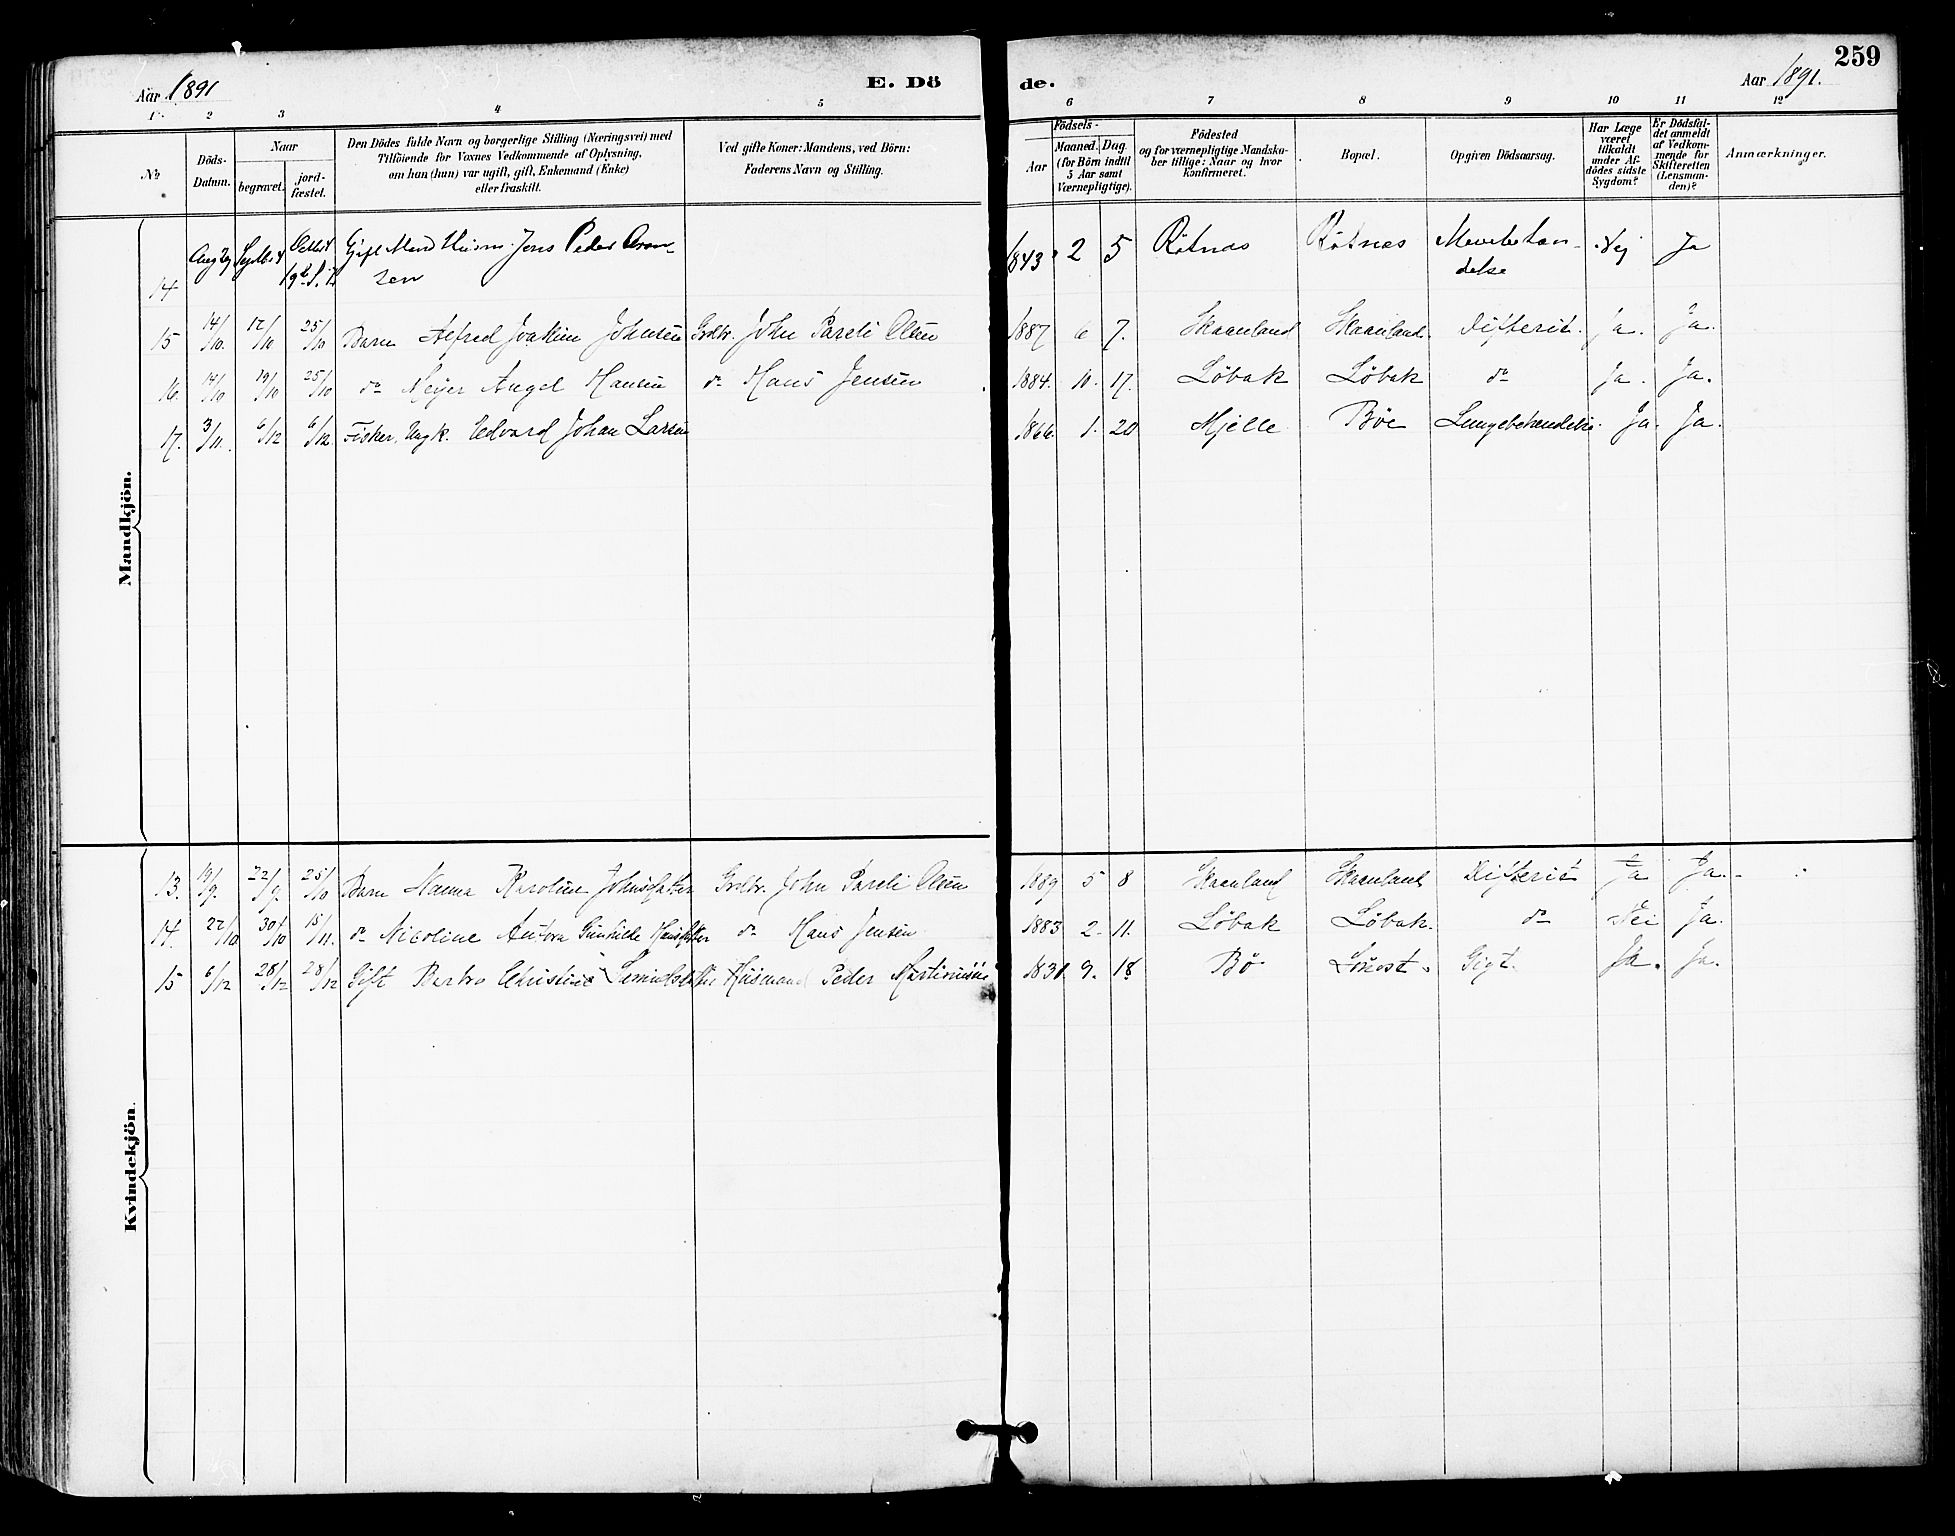 Aar 1891
E. Dö
de.
Aar 1891.
259
1 2 3 4 5 6 7 8 9 10 11 12
No
Döds-Datum.
Naar
begravet.
jord-fæstet.
Den Dödes fulde Navn og borgerlige Stilling (Næringsvei) med
Tilföiende for Voxnes Vedkommende af Oplysning,
om han (hun) var ugift, gift, Enkemand (Enke)
eller fraskilt.
Ved gifte Koner: Mandens, ved Börn:
Faderens Navn og Stilling.
Födsels-
Aar
Maaned. Dag
(for Börn indtil
5 Aar samt
Værnepligtige).
Födested
og for værnepligtige Mandska-
ber tillige: Naar og hvor
Konfirmeret.
Bopæl.
Opgiven Dödsaarsag.
Har Læge
været
tilkaldt
under Af-
dödes sidste
Sygdom?
Er Dödsfal-
det anmeldt
af Vedkom-
mende for
Skifteretten
(Lensman-
den)?
Anmærkninger.
Mandkjön.
14 Aug 29 Septbr 4 Octbr 4 Gift Mand Husm. Jens Peder Aron- 1843 2 5 Røtnæs Røtnæs Nej Ja
sen
15 14/10. 17/10 25/10 Barn Alfred Joakim Johnsen Grdbr. John Pareli Olsen 1887 6 7. Skaanland Skaanland. Difterit. Ja. Ja.
16. 14/10 19/10 25/10 do Meyer Angel Hansen do Hans Jensen 1884. 10. 17. Løbak Løbak do Ja. Ja.
17. 3/11. 6/12 6/12 Fisker, Ungk. Edvard Johan Larsen 1866 1. 20 Mjelle Bøe Lungebetændelse. Ja. Ja.
Kvindekjön.
13. 19/9. 22/9. 25/10 Barn Hanna Karoline Johnsdatter Grdbr. John Pareli Olsen 1889 5 8 Skaanland Skaanland Difterit Ja Ja.
14. 22/10 30/10 15/11. do Nicoline Antora Gunhilde Hansdatter do Hans Jensen 1883 2. 11. Løbak Løbak. do Nei Ja.
15 6/12 28/12 28/12 Gift Barbro Christine Husmand Peder Martinusen 1831 9. 18 Bø Gigt. Ja. Ja.